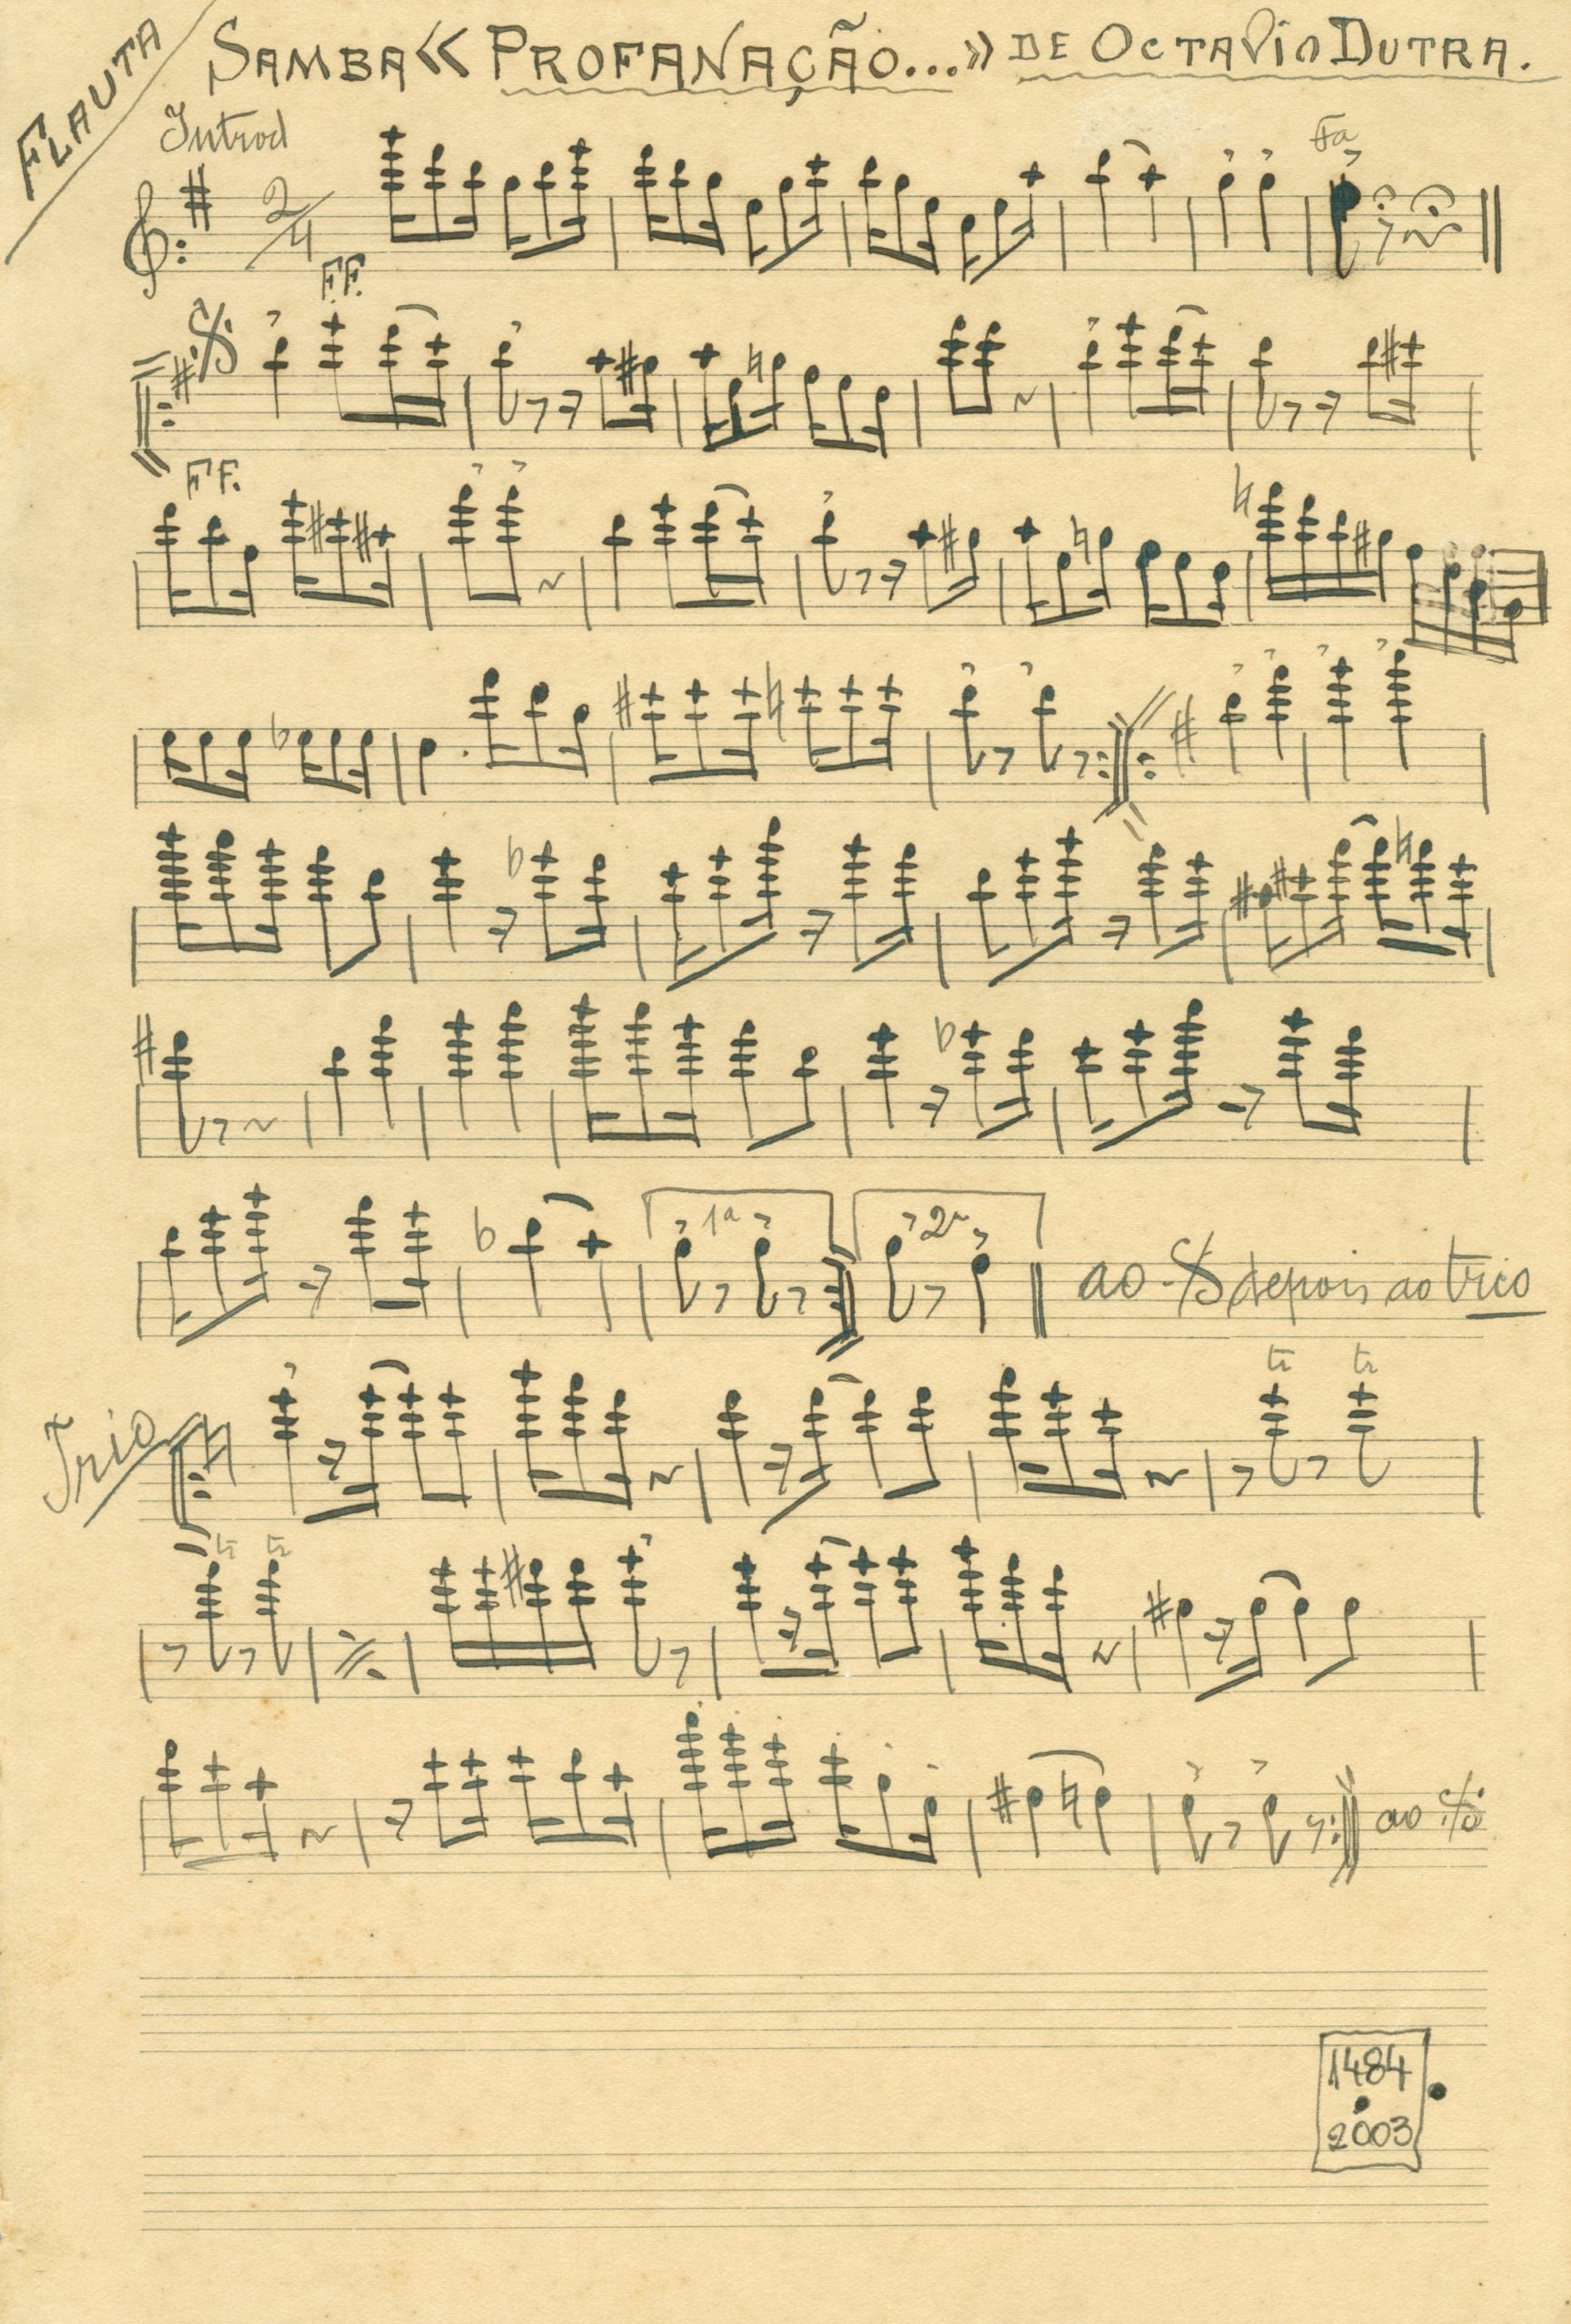 FLAUTA
SAMBA « PROFANAÇÃO... » DE OCTAVIO DUTRA.
Introd
Fa
2/4
F.F.
FF.
1ª 2ª
ao depois ao trio
Trio
tr tr
tr tr
ao
1484
2003